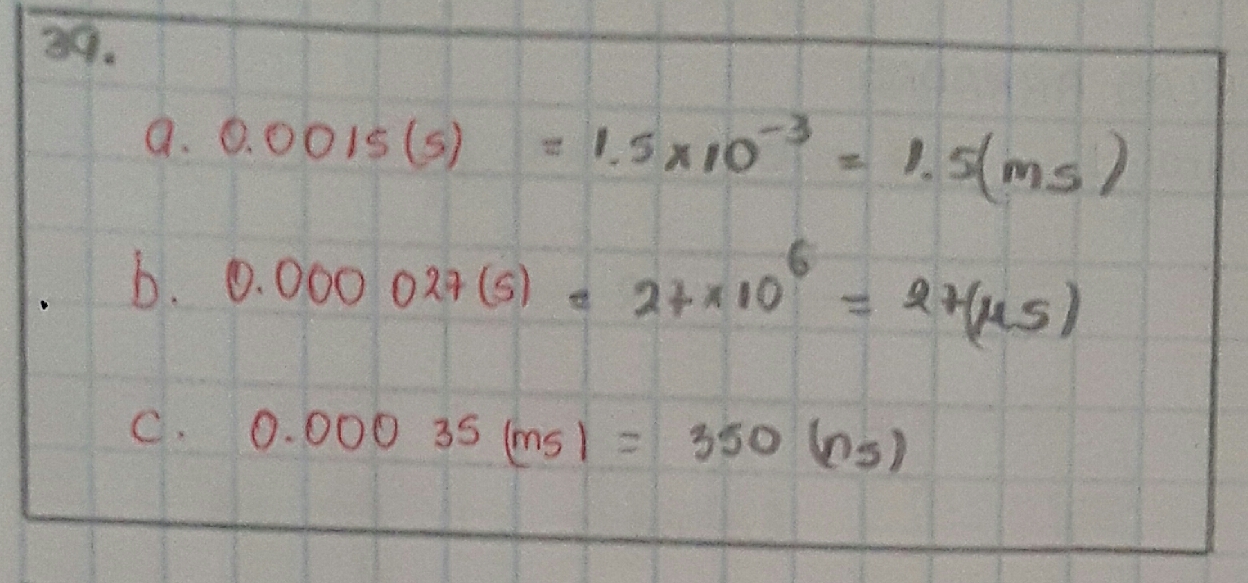 39.
a. 0.0015 (s) = 1.5 × 10⁻³ = 1.5 (ms)
b. 0.000 027 (s) = 27 × 10⁶ = 27 (μs)
c. 0.000 35 (ms) = 350 (ns)